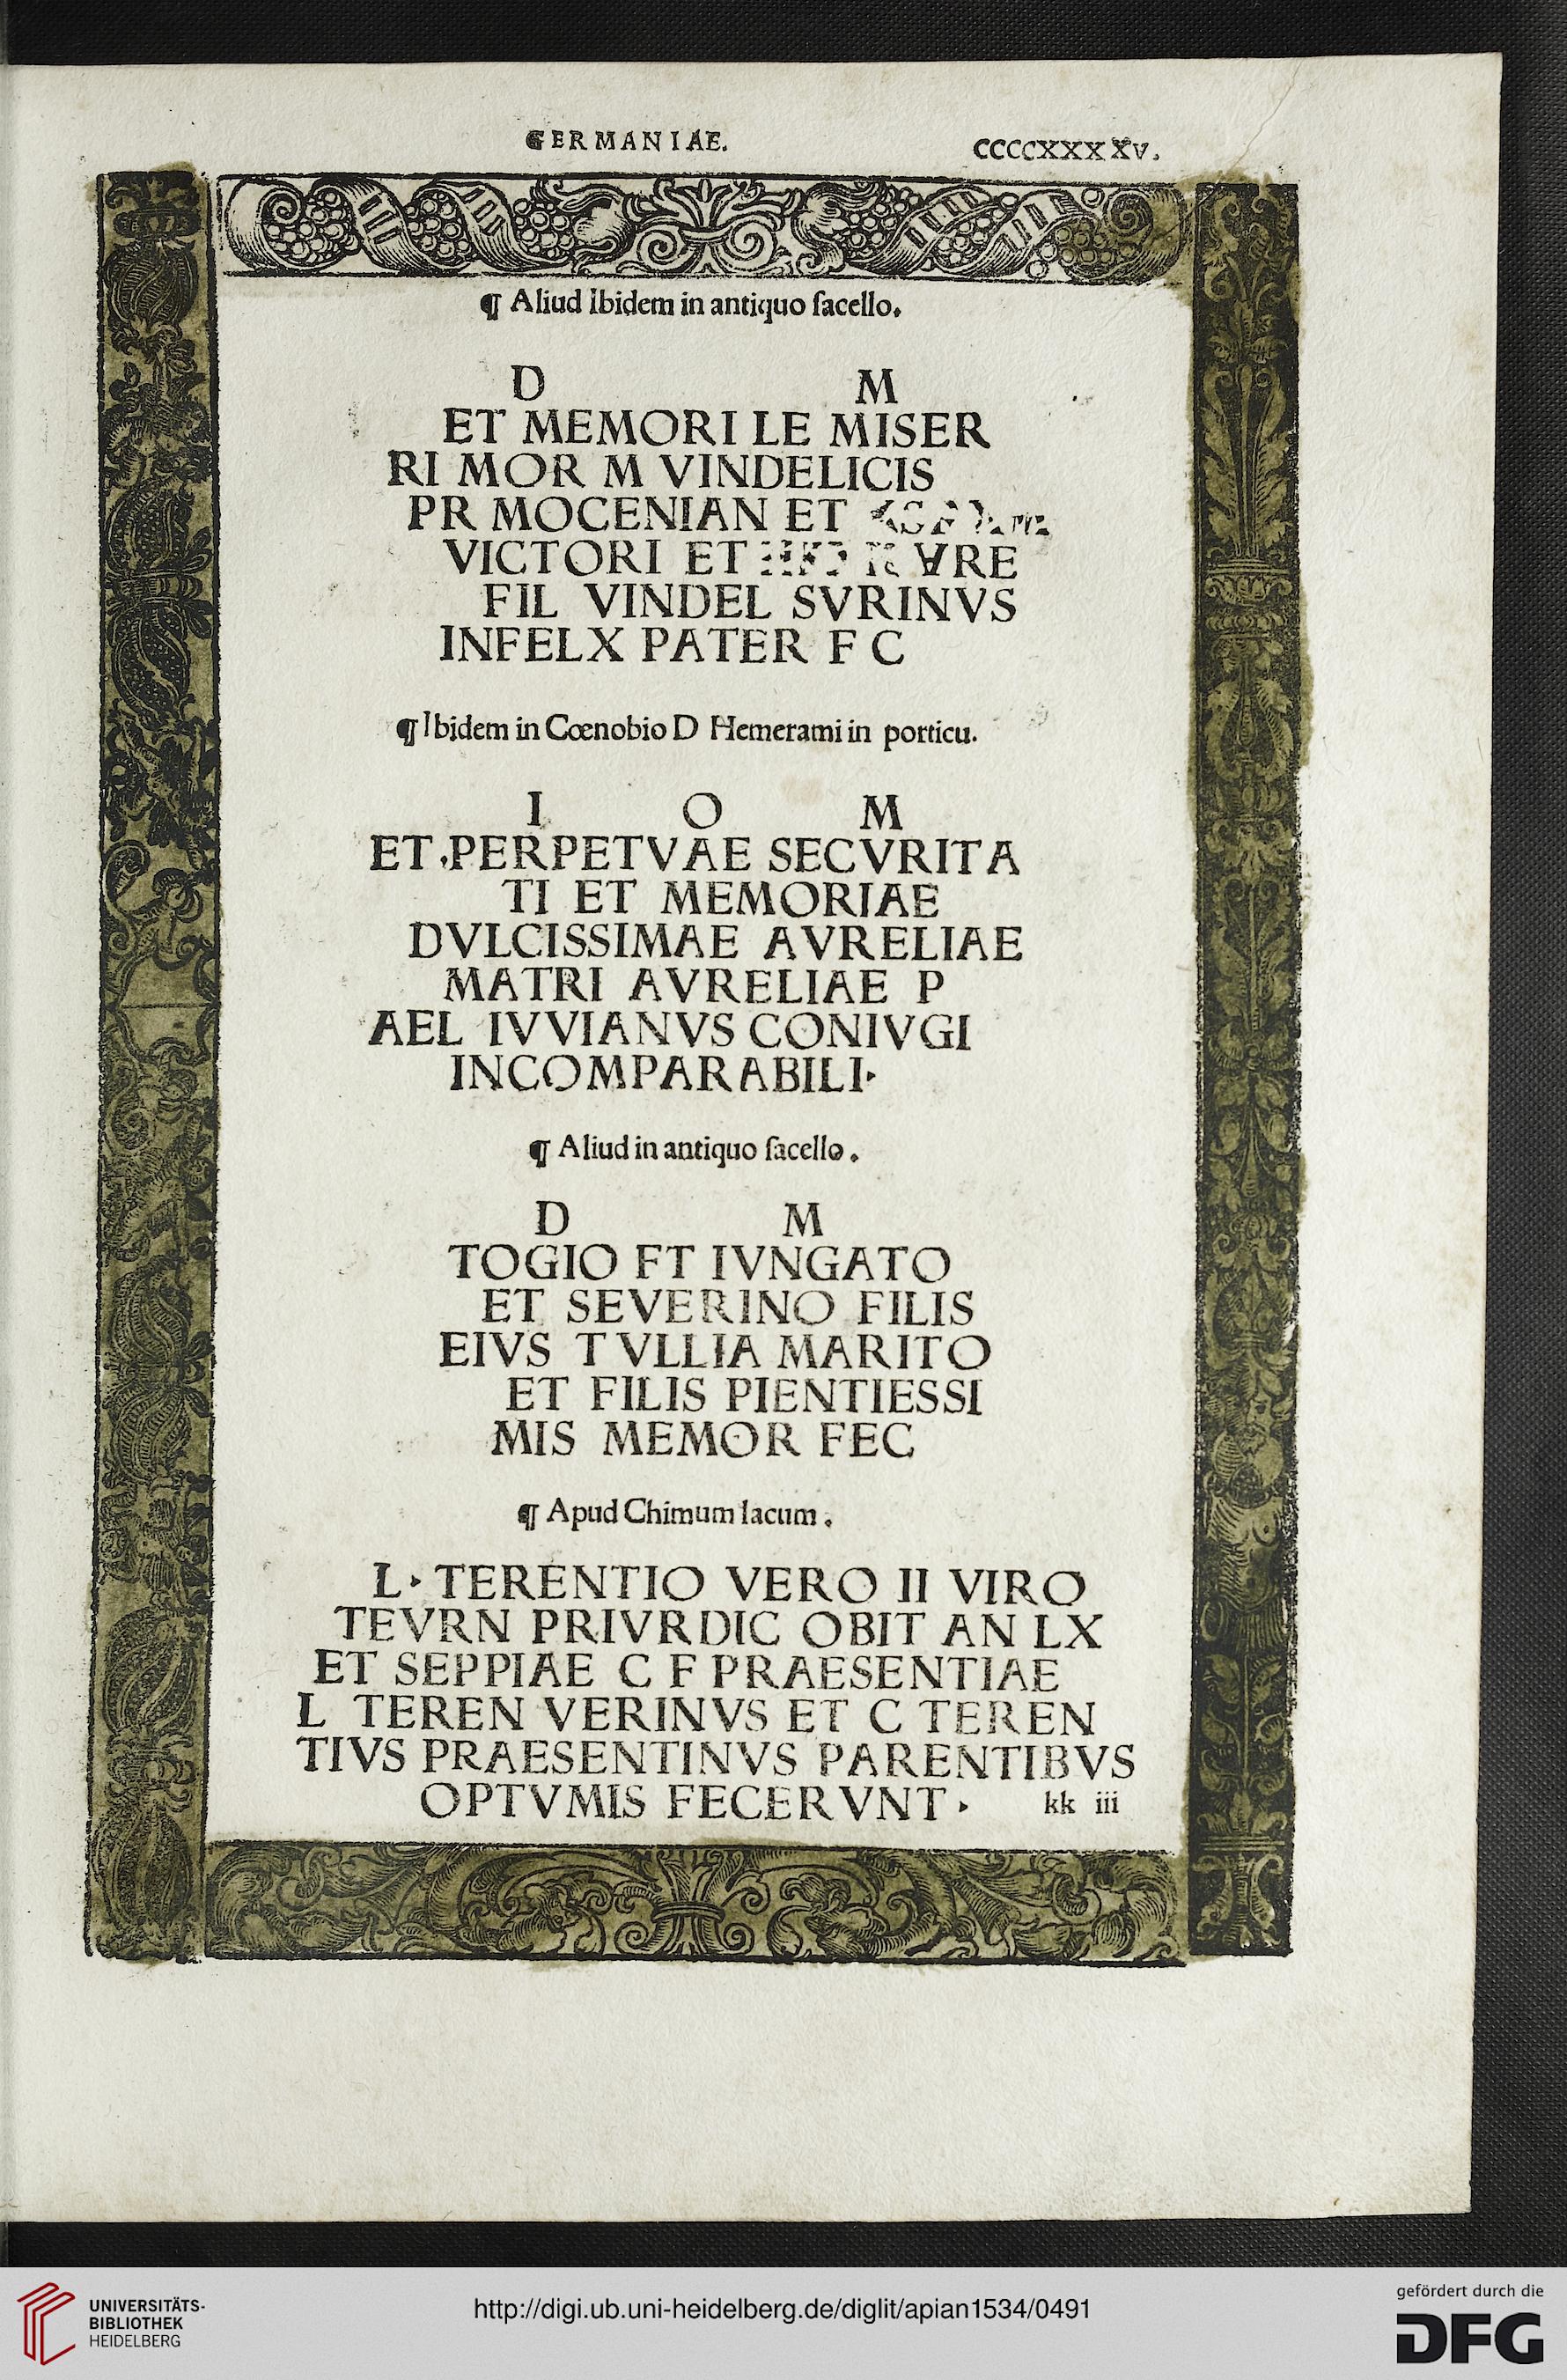 GERMANIAE.
CCCCXXXXV.
¶ Aliud Ibidem in antiquo ſacello.
D M
ET MEMORI LE MISER
RI MOR M VINDELICIS
PR MOCENIAN ET
VICTORI ET
FIL VINDEL SVRINVS
INFELX PATER F C
¶ Ibidem in Cœnobio D Hemerami in porticu.
I O M
ET PERPETVAE SECVRITA
TI ET MEMORIAE
DVLCISSIMAE AVRELIAE
MATRI AVRELIAE P
AEL IVVIANVS CONIVGI
INCOMPARABILI·
¶ Aliud in antiquo ſacello.
D M
TOGIO FT IVNGATO
ET SEVERINO FILIS
EIVS TVLLIA MARITO
ET FILIS PIENTIESSI
MIS MEMOR FEC
¶ Apud Chimum lacum.
L· TERENTIO VERO II VIRO
TEVRN PRIVRDIC OBIT AN LX
ET SEPPIAE C F PRAESENTIAE
L TEREN VERINVS ET C TEREN
TIVS PRAESENTINVS PARENTIBVS
OPTVMIS FECERVNT·
kk iii
UNIVERSITÄTS-
BIBLIOTHEK
HEIDELBERG
http://digi.ub.uni-heidelberg.de/diglit/apian1534/0491
gefördert durch die
DFG